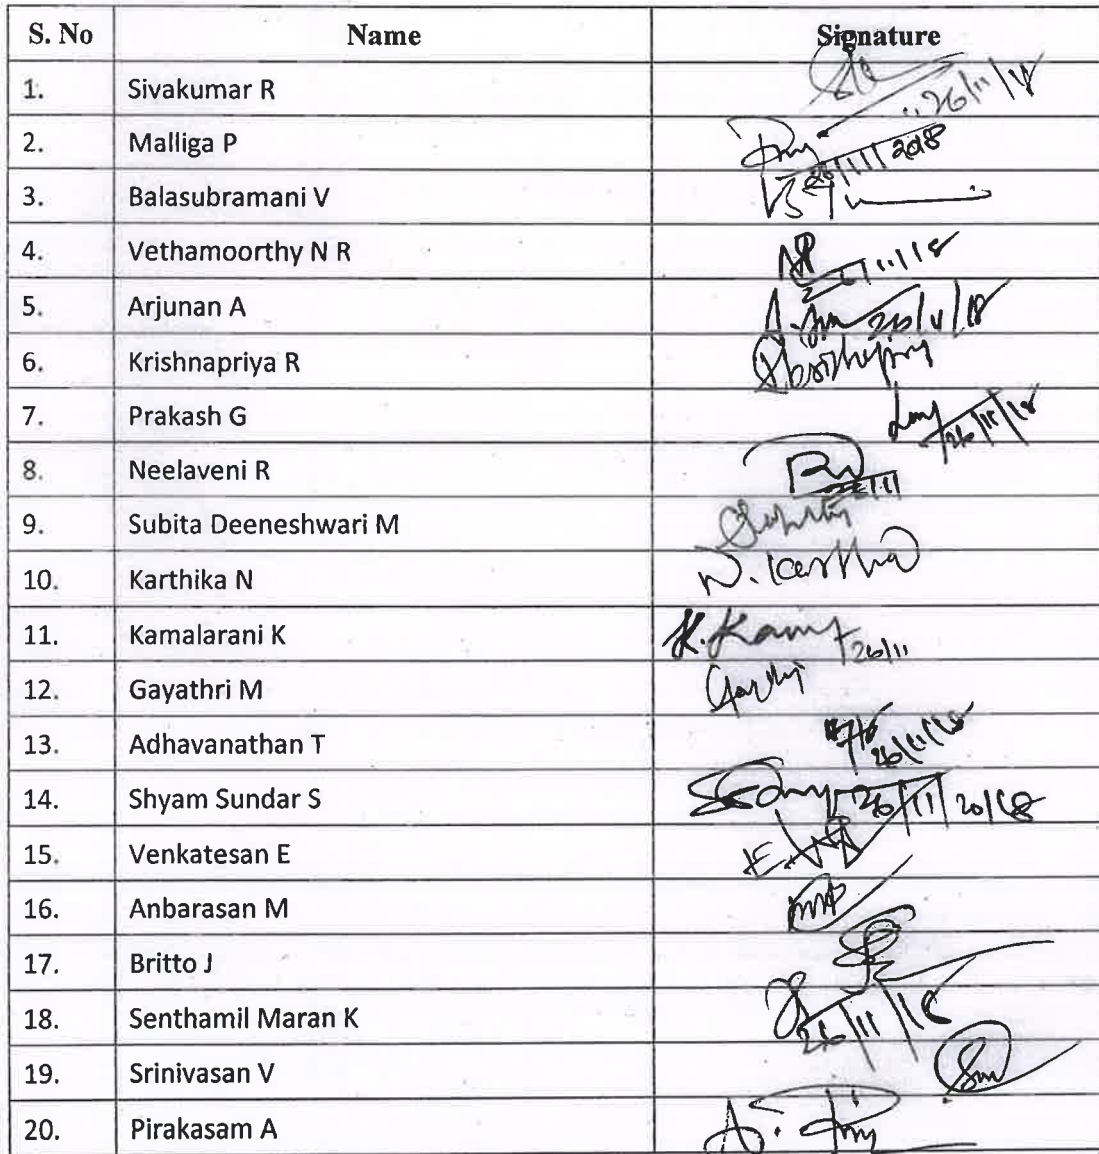 S. No Name Signature
1. Sivakumar R 26/11/18
2. Malliga P 26/11/2018
3. Balasubramani V
4. Vethamoorthy N R 26/11/18
5. Arjunan A 26/11/18
6. Krishnapriya R
7. Prakash G 26/11/18
8. Neelaveni R
9. Subita Deeneshwari M
10. Karthika N N.
11. Kamalarani K K. 26/11
12. Gayathri M
13. Adhavanathan T 26/11/18
14. Shyam Sundar S 26/11/2018
15. Venkatesan E E.
16. Anbarasan M
17. Britto J
18. Senthamil Maran K 26/11/18
19. Srinivasan V
20. Pirakasam A A.